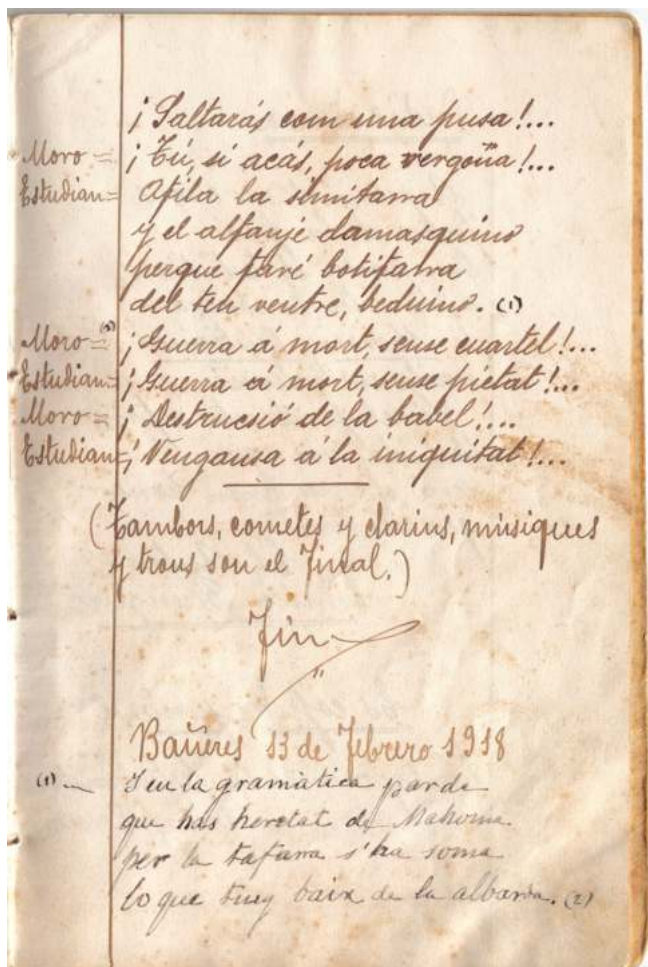 ¡Saltarás com una pusa!...
Moro = ¡Tú, si acás, poca vergoña!...
Estudian= Afila la simitarra
y el alfanje damasquino
perque faré botifarra
del teu ventre, beduino. (1)
Moro = ¡Guerra á mort, sense cuartel!...
Estudian= ¡Guerra á mort, sense pietat!...
Moro = ¡Destrucsió de la babel!...
Estudian= ¡Vengansa á la iniquitat!...
(Tambors, cornetes y clarins, músiques
y trons son el Final.)
Fin
Bañeres 13 de Febrero 1918
(1) — Y en la gramática parda
que has heretat de Mahoma
per la tafarra s'ha
lo que baix de la albarda. (2)